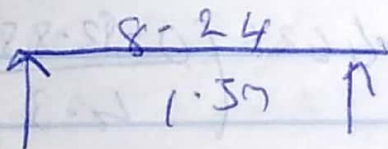 8-24
1.5m